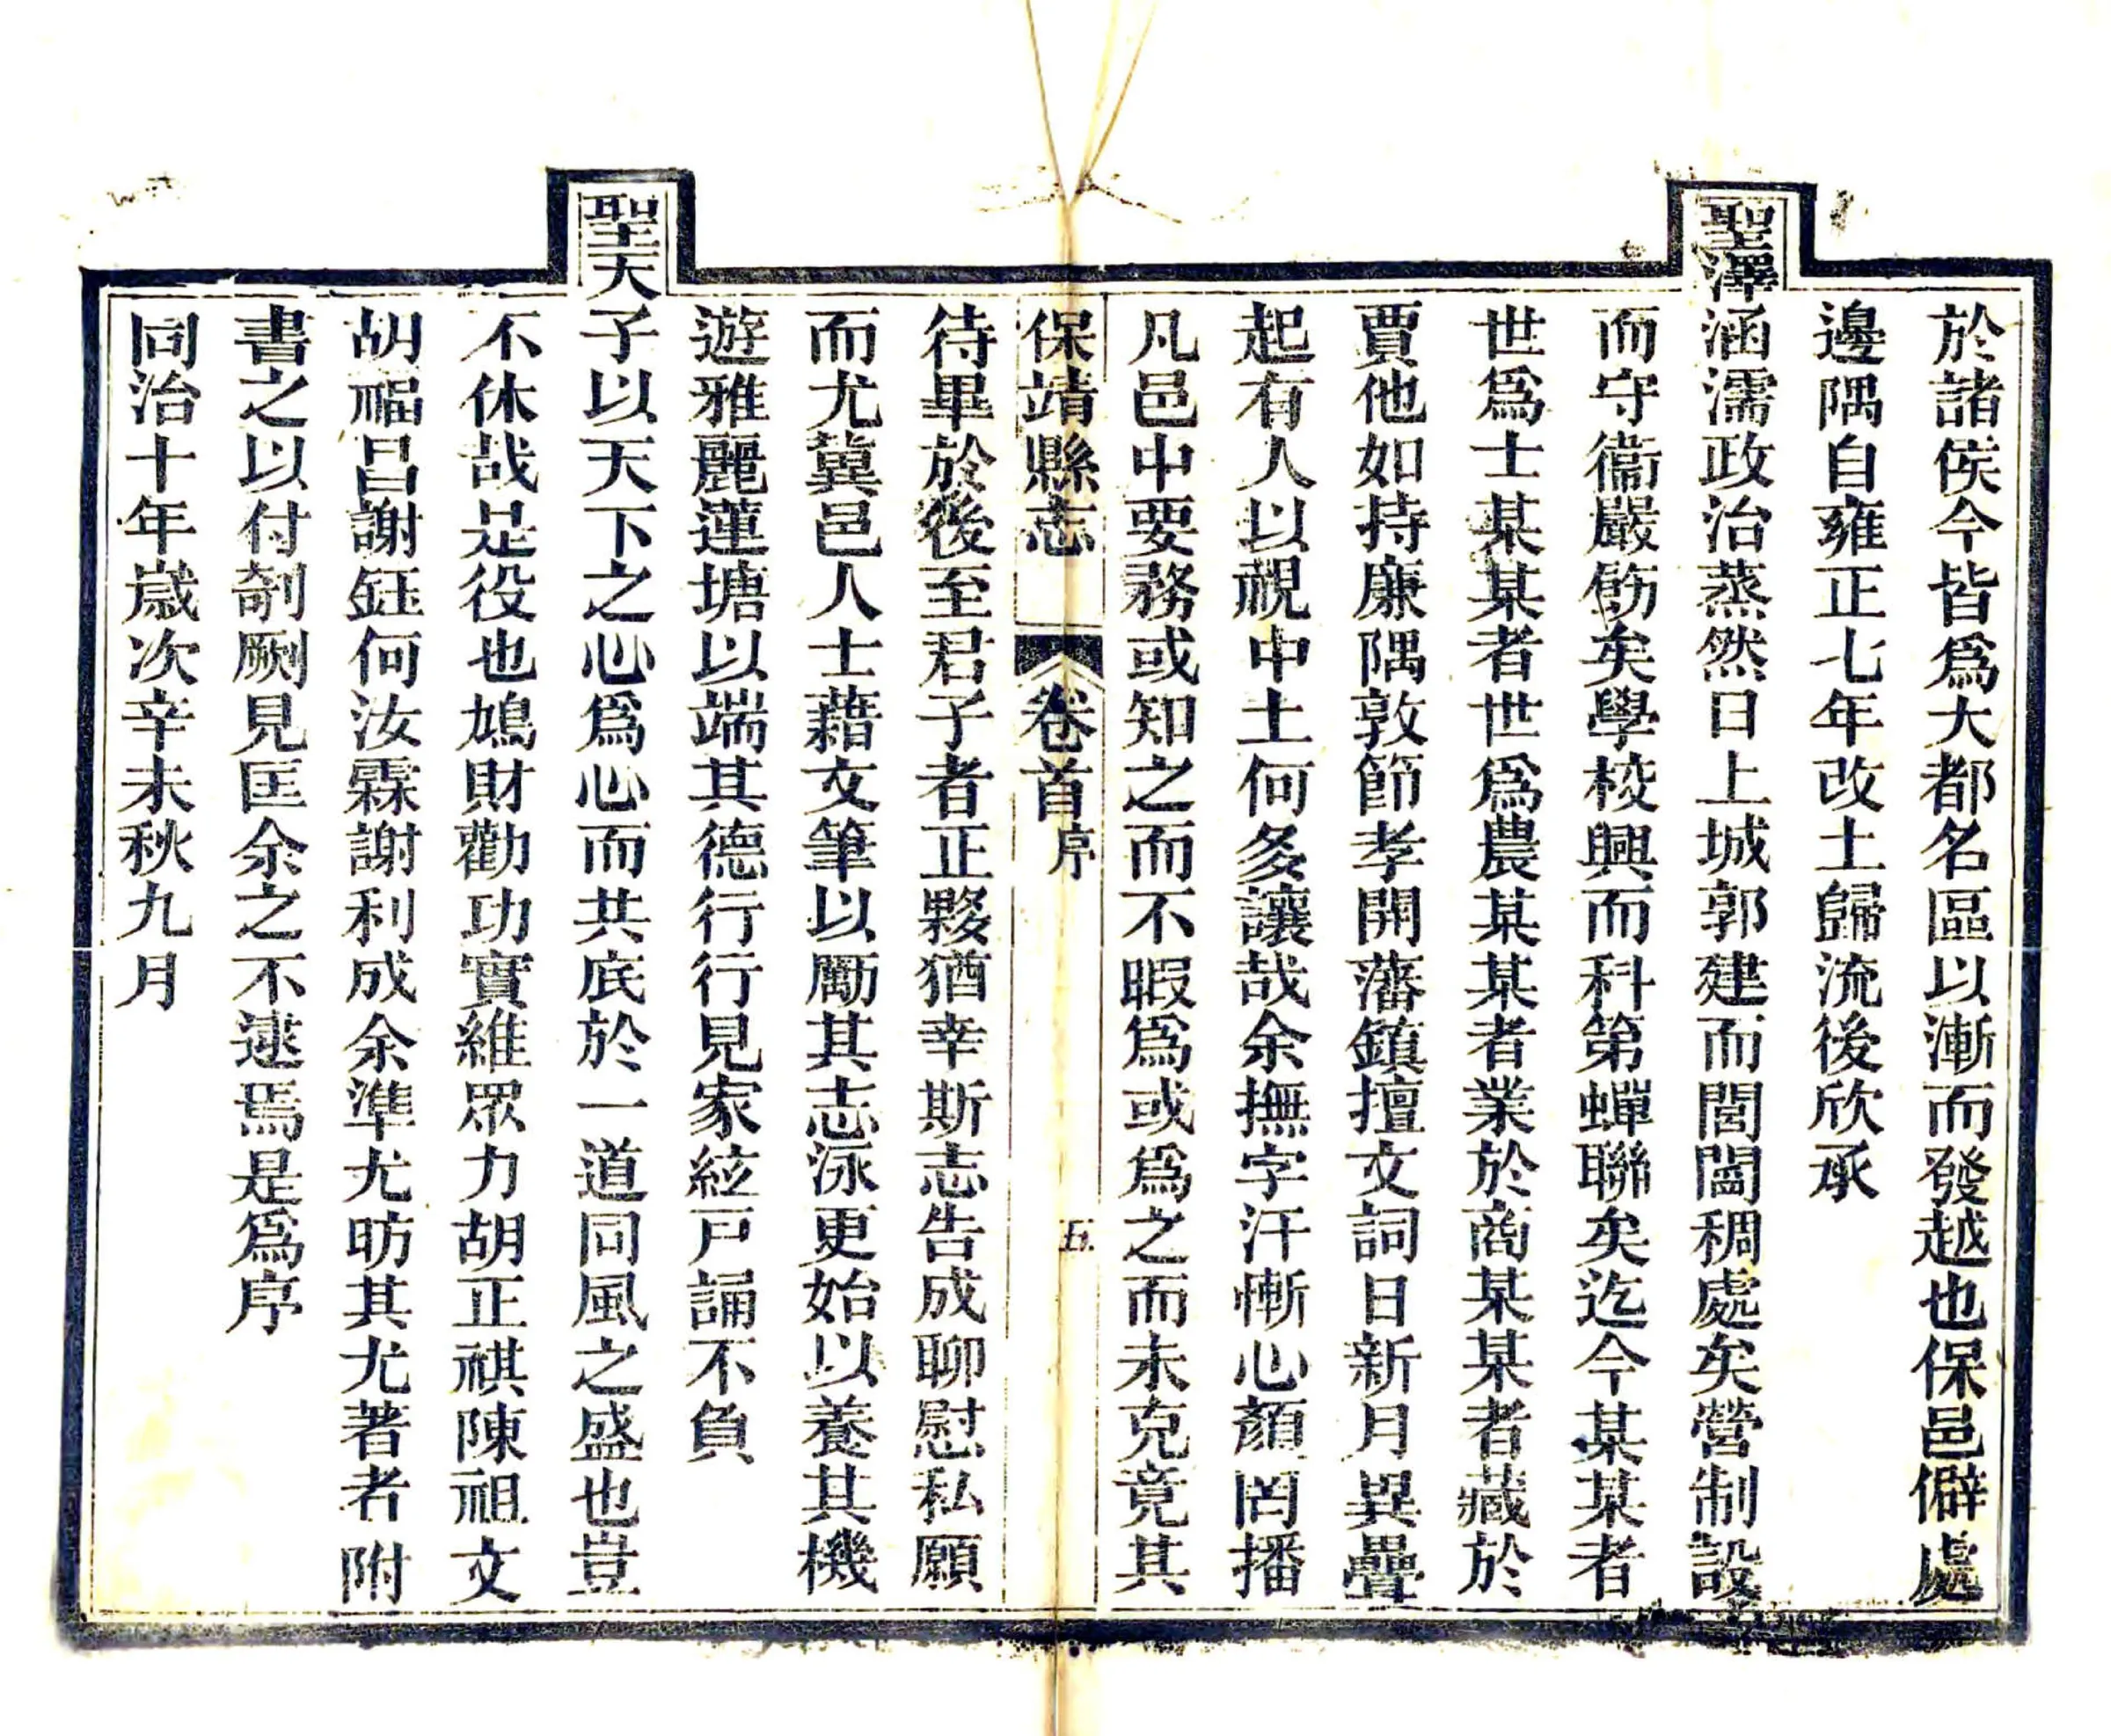 於諸侯今皆爲大都名區以漸而發越也保邑僻處
邊隅自雍正七年改土歸流後欣承
聖澤涵濡政治蒸然日上城郭建而閭閻稠處矣營制設
而守衞嚴飭矣學校興而科第蟬聯矣迄今某某者
世爲士某某者世爲農某某者業於商某某者藏於
賈他如持廉隅敦節孝開藩鎮擅文詞日新月異疊
起有人以視中土何多讓哉余撫字汗慚心顏罔播
凡邑中要務或知之而不暇爲或爲之而未克竟其
保靖縣志 卷首 序 五
待畢於後至君子者正夥猶幸斯志告成聊慰私願
而尤冀邑人士藉文筆以勵其志泳更始以養其機
遊雅麗蓮塘以端其德行行見家絃戸誦不負
聖天子以天下之心爲心而共底於一道同風之盛也豈
不休哉是役也鳩財勸功實維眾力胡正祺陳祖文
胡福昌謝鈺何汝霖謝利成余準尤昉其尤著者附
書之以付剞劂見匡余之不逮焉是爲序
同治十年歲次辛未秋九月